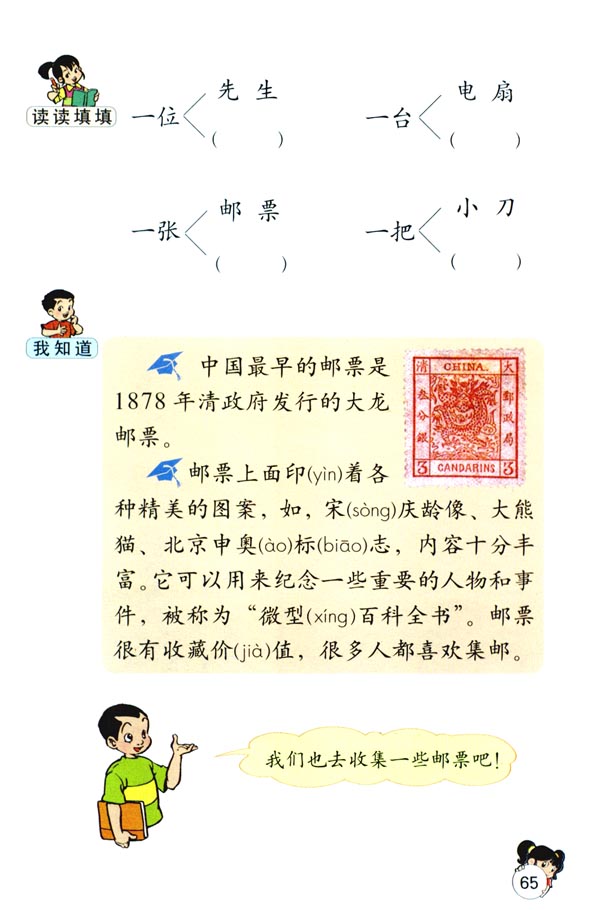 读读填填
一位 先生 ( )
一台 电扇 ( )
一张 邮票 ( )
一把 小刀 ( )
我知道
中国最早的邮票是
1878年清政府发行的大龙
邮票。
清 CHINA. 大
叁分銀 郵政局
3 CANDARINS 3
邮票上面印(yìn)着各
种精美的图案，如，宋(sòng)庆龄像、大熊
猫、北京申奥(ào)标(biāo)志，内容十分丰
富。它可以用来纪念一些重要的人物和事
件，被称为“微型(xíng)百科全书”。邮票
很有收藏价(jià)值，很多人都喜欢集邮。
我们也去收集一些邮票吧！
65